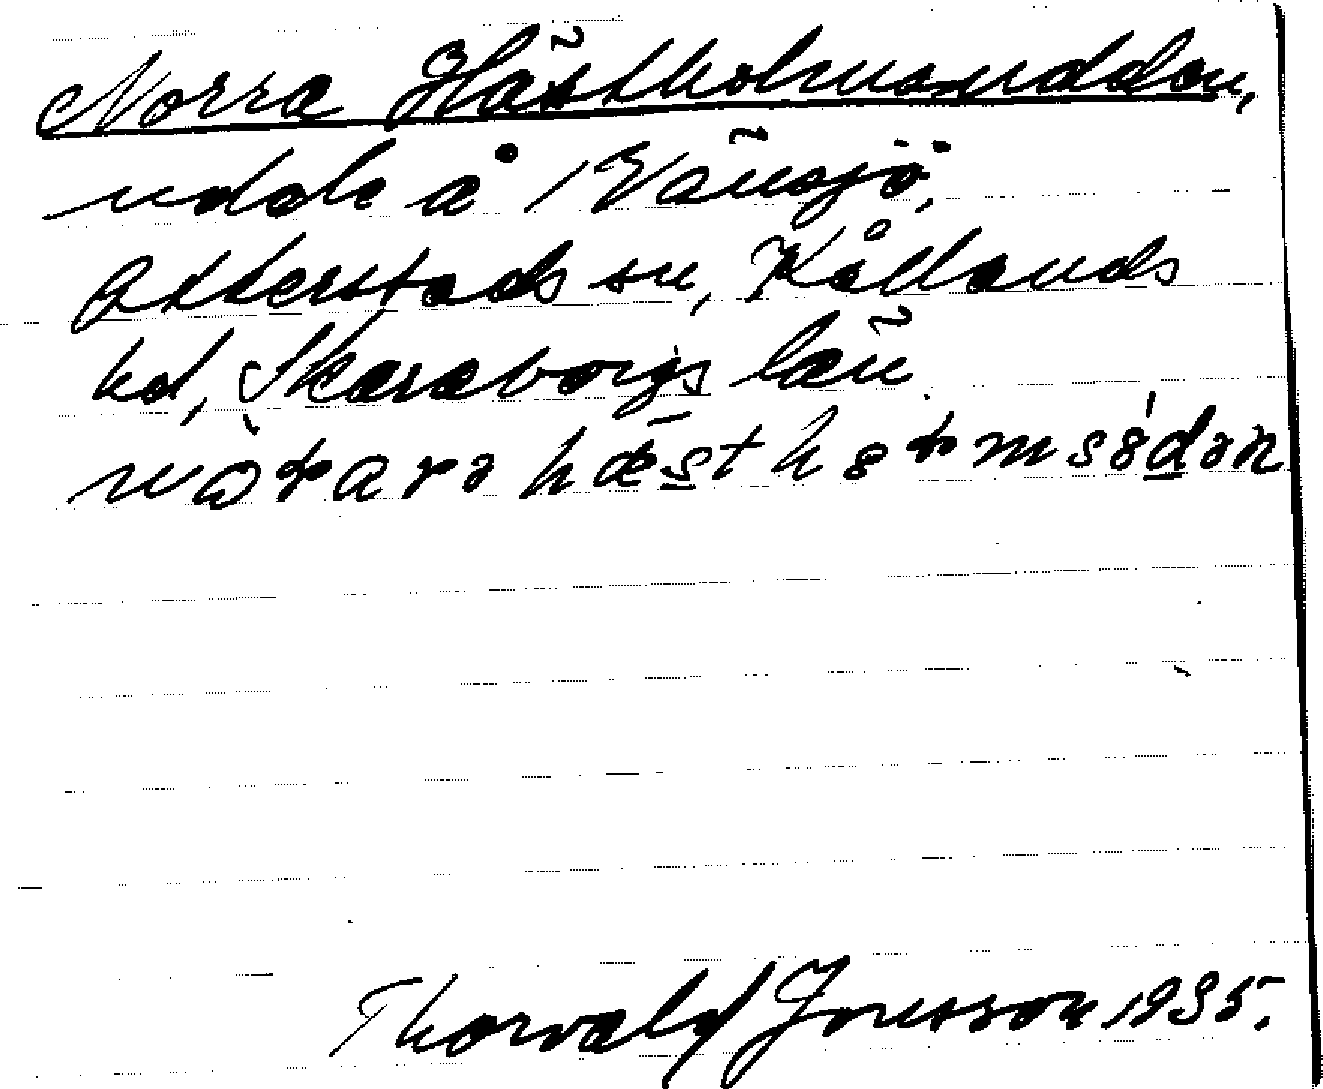 Norra Hästholmsudden,
udde å Vänsjö,
Otterstads sn, Kållands
hd, Skaraborgs län.
Thorvald Jonsson 1935.